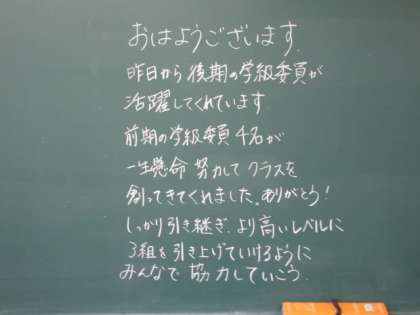 おはようございます.
昨日から後期の学級委員が
活躍してくれています
前期の学級委員4名が
一生懸命 努力して クラスを
創ってきてくれました、ありがとう!
しっかり引き継ぎ、より高いレベルに
3組を引き上げていけるように
みんなで 協力していこう.